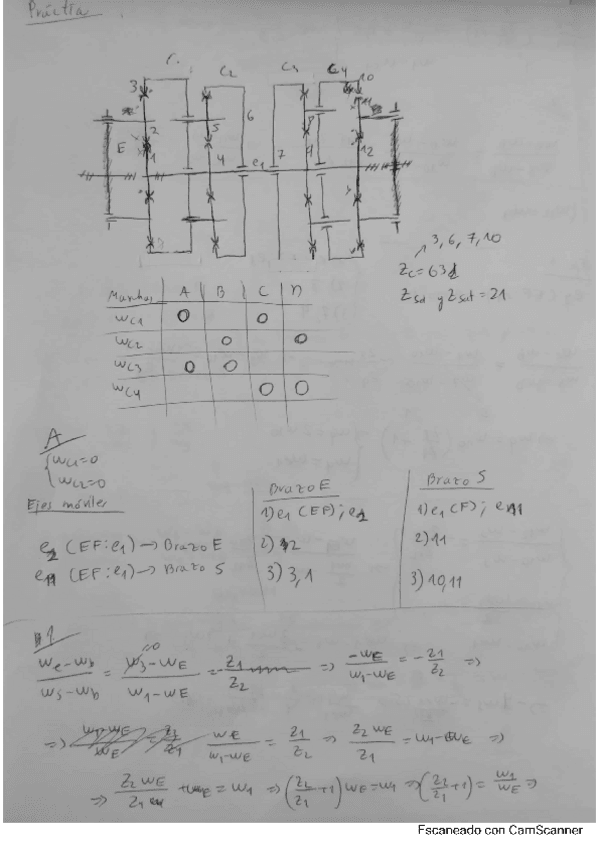 Práctica
C2 C3 C4
3 10
6
E 2 5
1 4 e1 7 12
3, 6, 7, 10
Zc = 63
Zsd y Zsat = 21
Marchas A B C D
wc1 O O
wc2 O O
wc3 O O
wc4 O O
A
wc1=0
wc2=0
Ejes móviles
e2 (EF: e1) → Brazo E
e11 (EF: e1) → Brazo S
Brazo E
1) e1 (EF); e2
2) 2
3) 3,1
Brazo S
1) e1 (F); e11
2) 11
3) 10,11
we-wb / ws-wb = w3-wE / w1-wE = - Z1 / Z2 ⇒ -wE / w1-wE = - Z1 / Z2 ⇒
⇒ wE / w1-wE = Z1 / Z2 ⇒ Z2 wE / Z1 = w1-wE ⇒
⇒ Z2 wE / Z1 + wE = w1 ⇒ (Z2 / Z1 +1) wE = w1 ⇒ (Z2 / Z1 +1) = w1 / wE ⇒
Escaneado con CamScanner